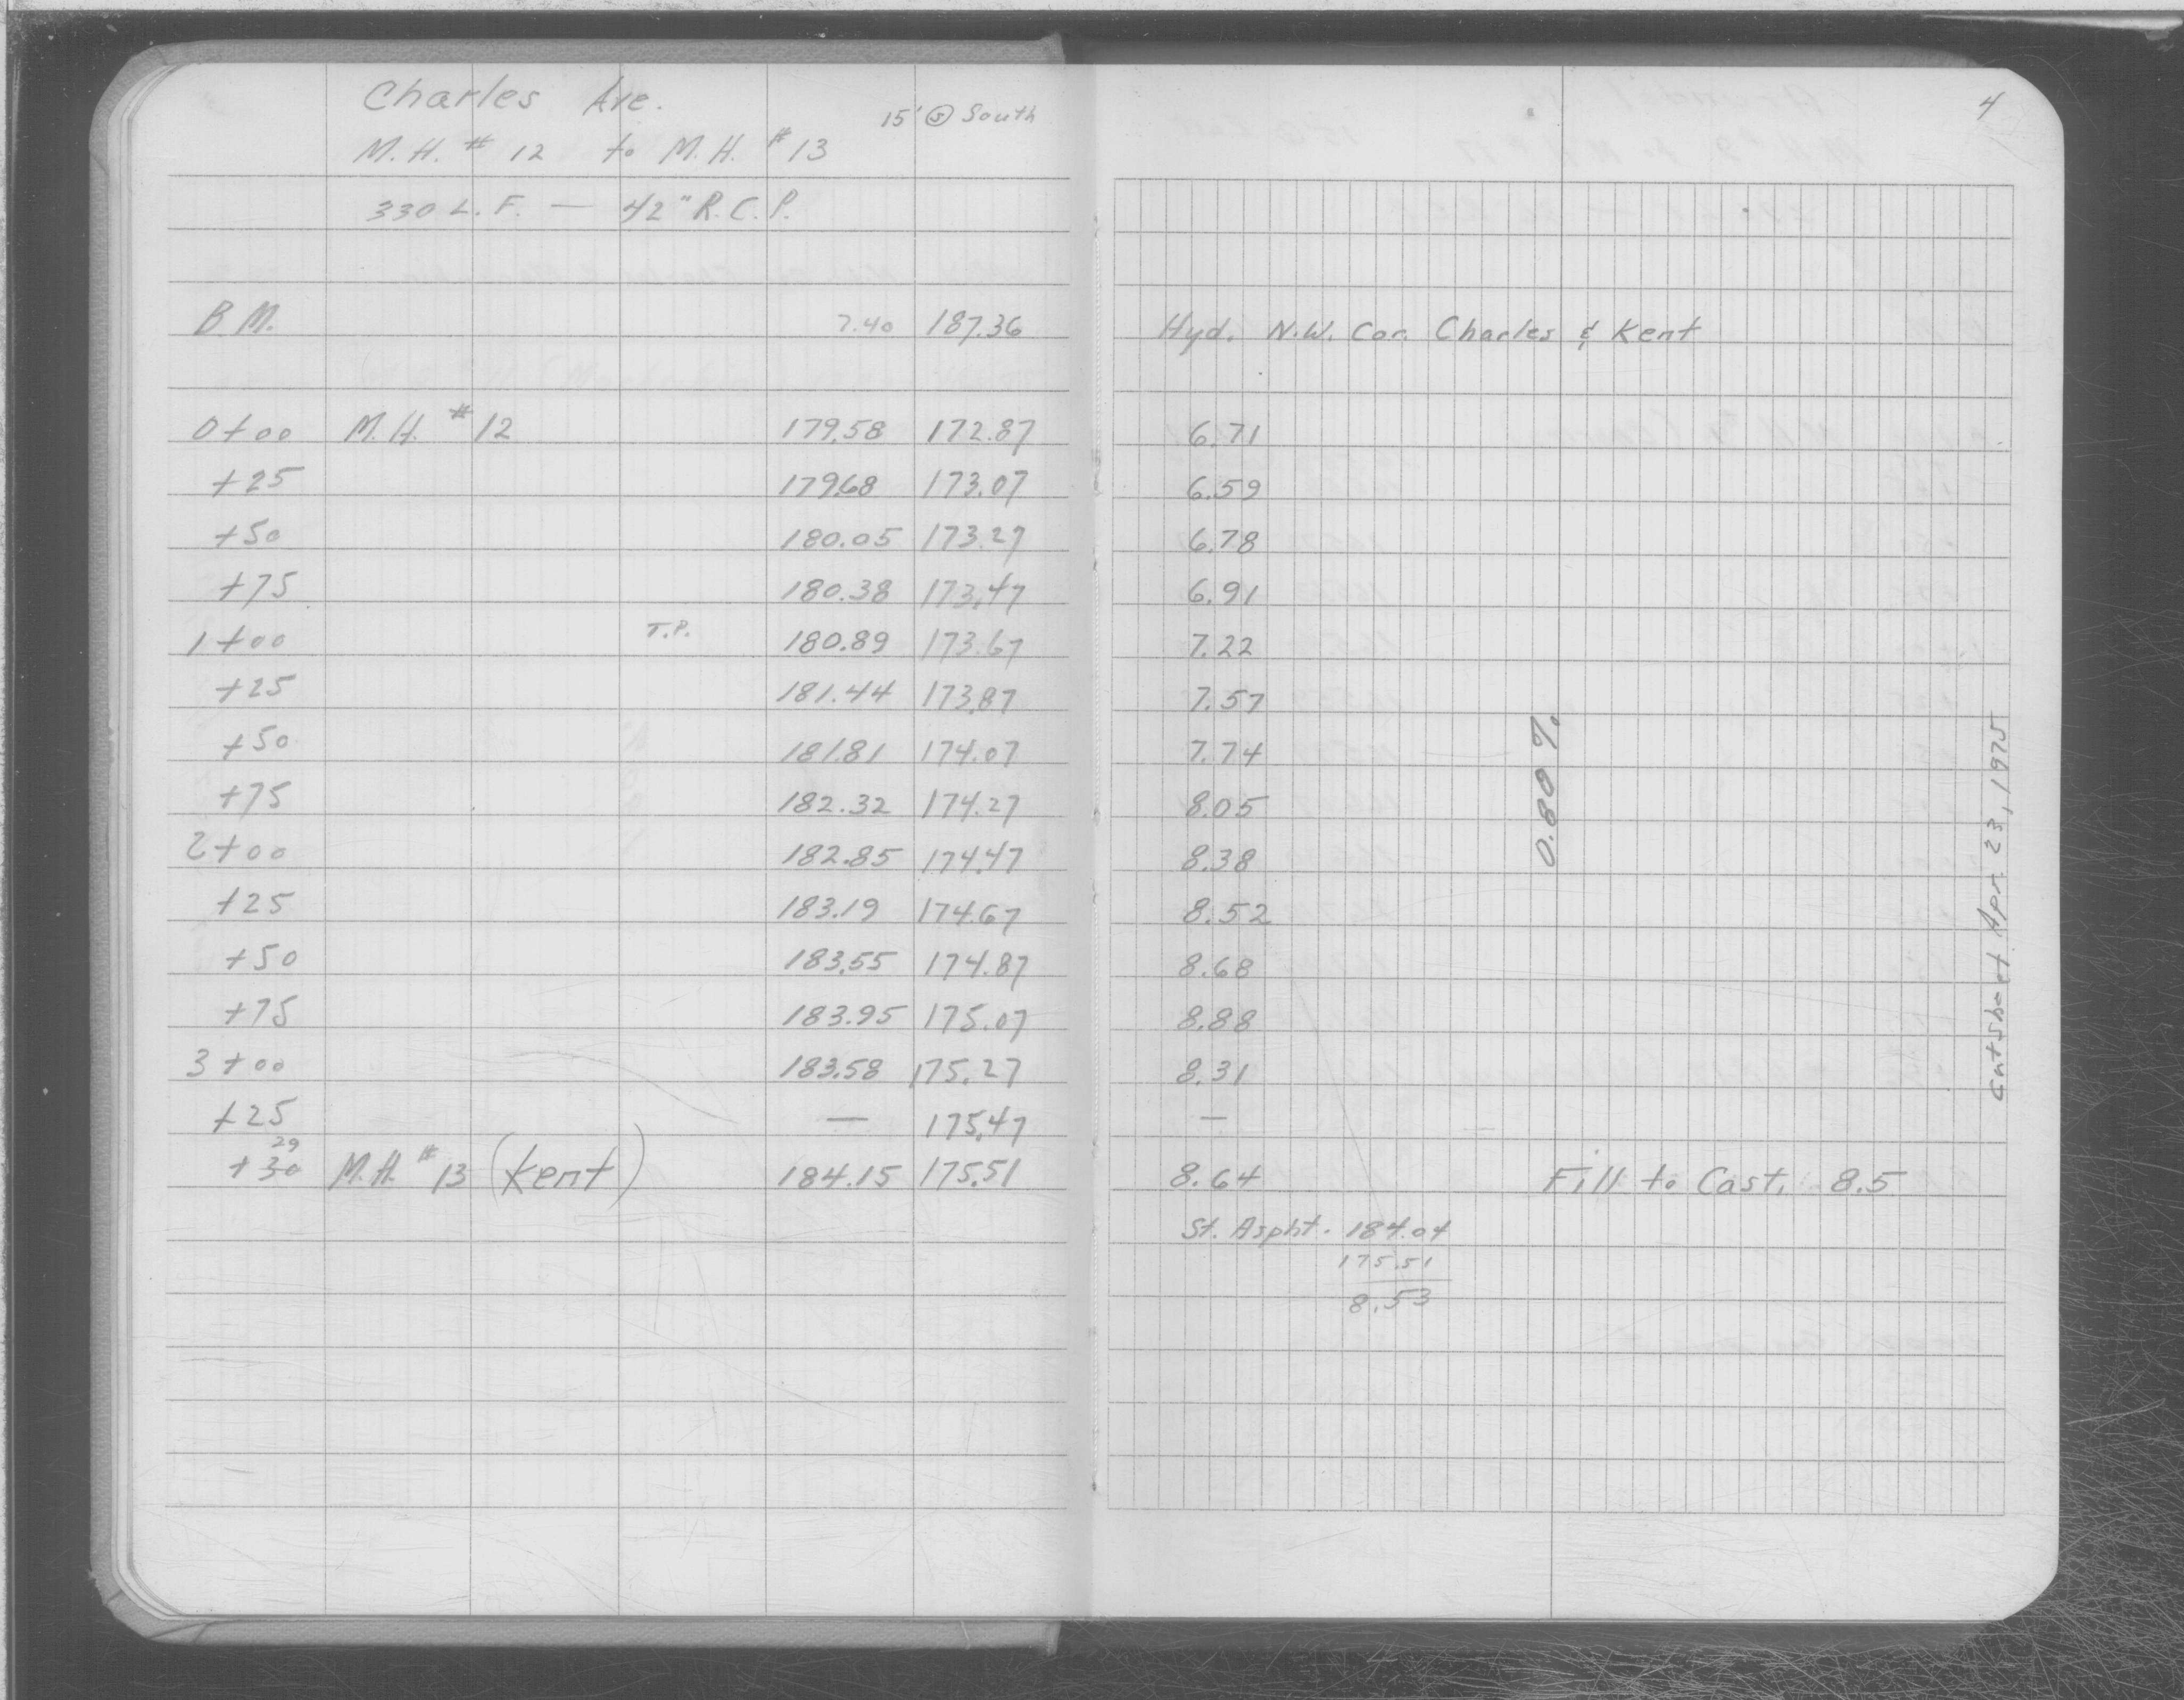 Charles Ave.
15' @ South
M.H. # 12 to M.H. # 13
330 L.F. — 42" R.C.P.
4
B.M. 7.40 187.36 Hyd. N.W. Cor. Charles & Kent
0+00 M.H. # 12 179.58 172.87 6.71
+25 179.68 173.07 6.59
+50 180.05 173.27 6.78
+75 180.38 173.47 6.91
1+00 T.P. 180.89 173.67 7.22
+25 181.44 173.87 7.57
+50 181.81 174.07 7.74
+75 182.32 174.27 8.05
2+00 182.85 174.47 8.38
+25 183.19 174.67 8.52
+50 183.55 174.87 8.68
+75 183.95 175.07 8.88
3+00 183.58 175.27 8.31
+25 — 175.47 —
29
+30 M.H. # 13 (Kent) 184.15 175.51 8.64 Fill to Cast. 8.5
St. Aspht. 184.04
175.51
8.53
0.80 %
Cutsheet Apr. 23, 1975